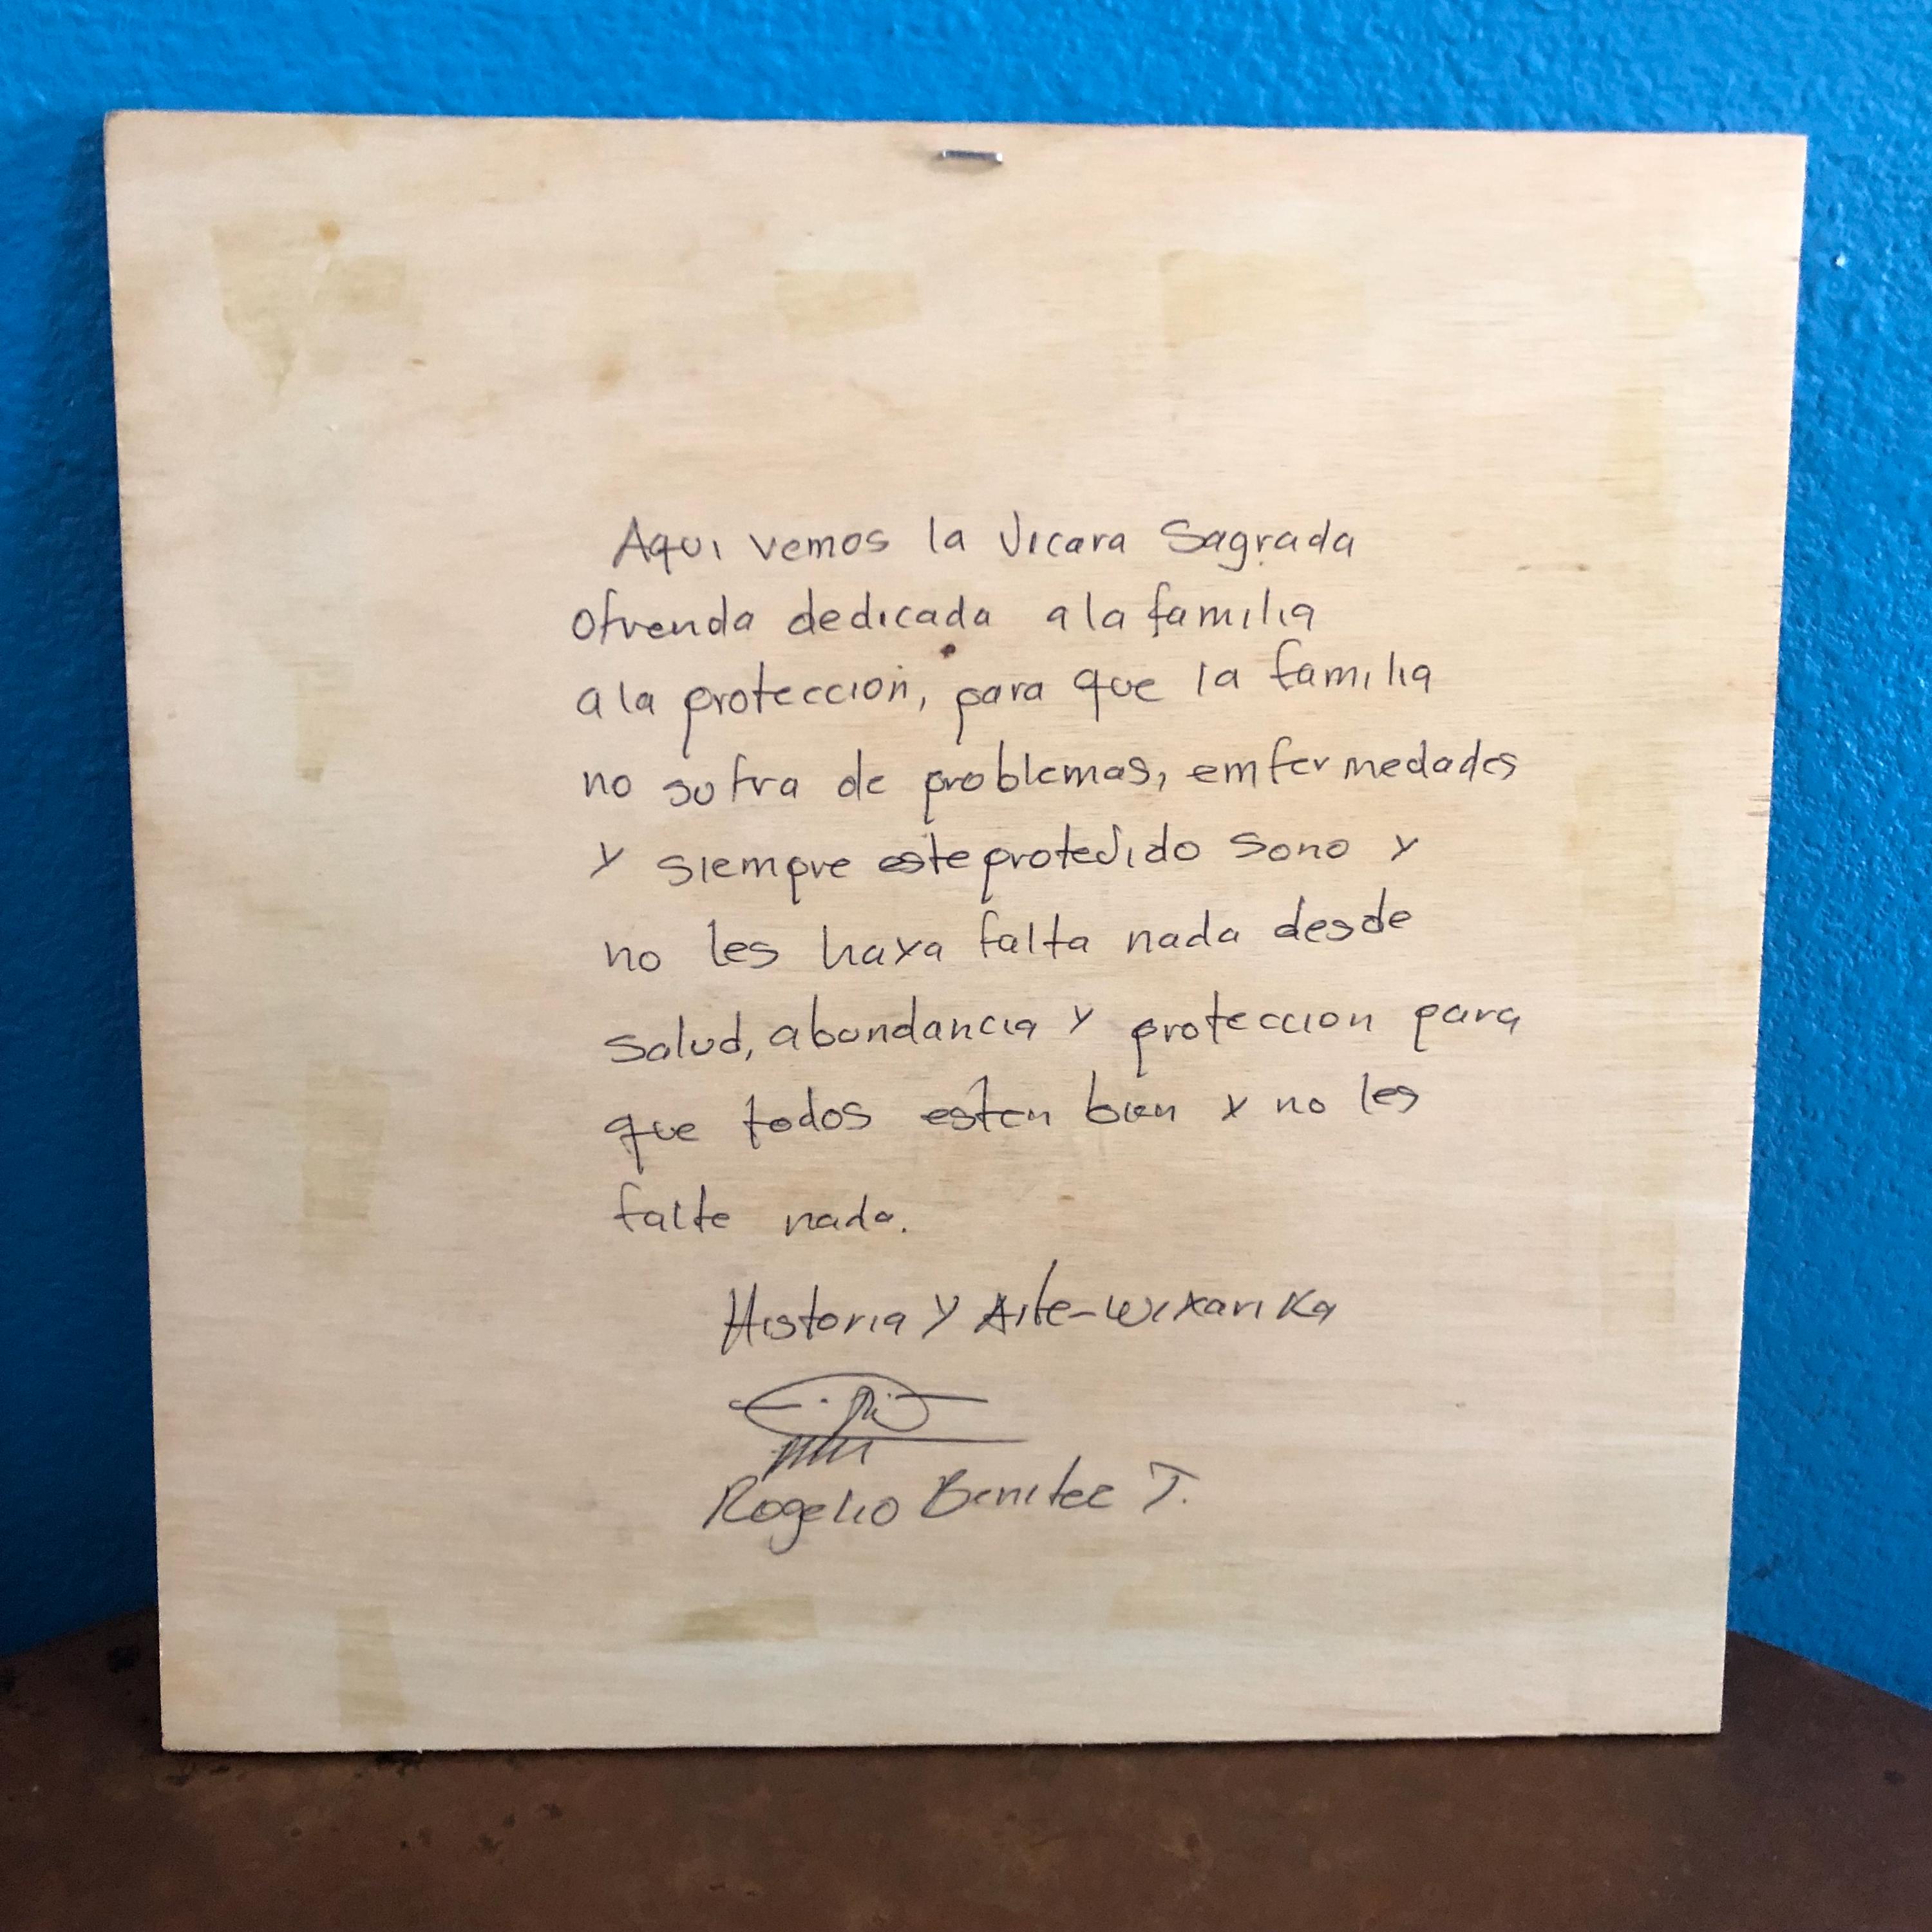 Aqui vemos la Jicara Sagrada
Ofrenda dedicada a la familia
a la protección, para que la familia
no sufra de problemas, emfermedades
y siempre este protejido sano y
no les haya falta nada desde
salud, abundancia y proteccion para
que todos esten bien y no les
falte nada.
Historia y Arte-Wixarika
Rogelio Benitez T.